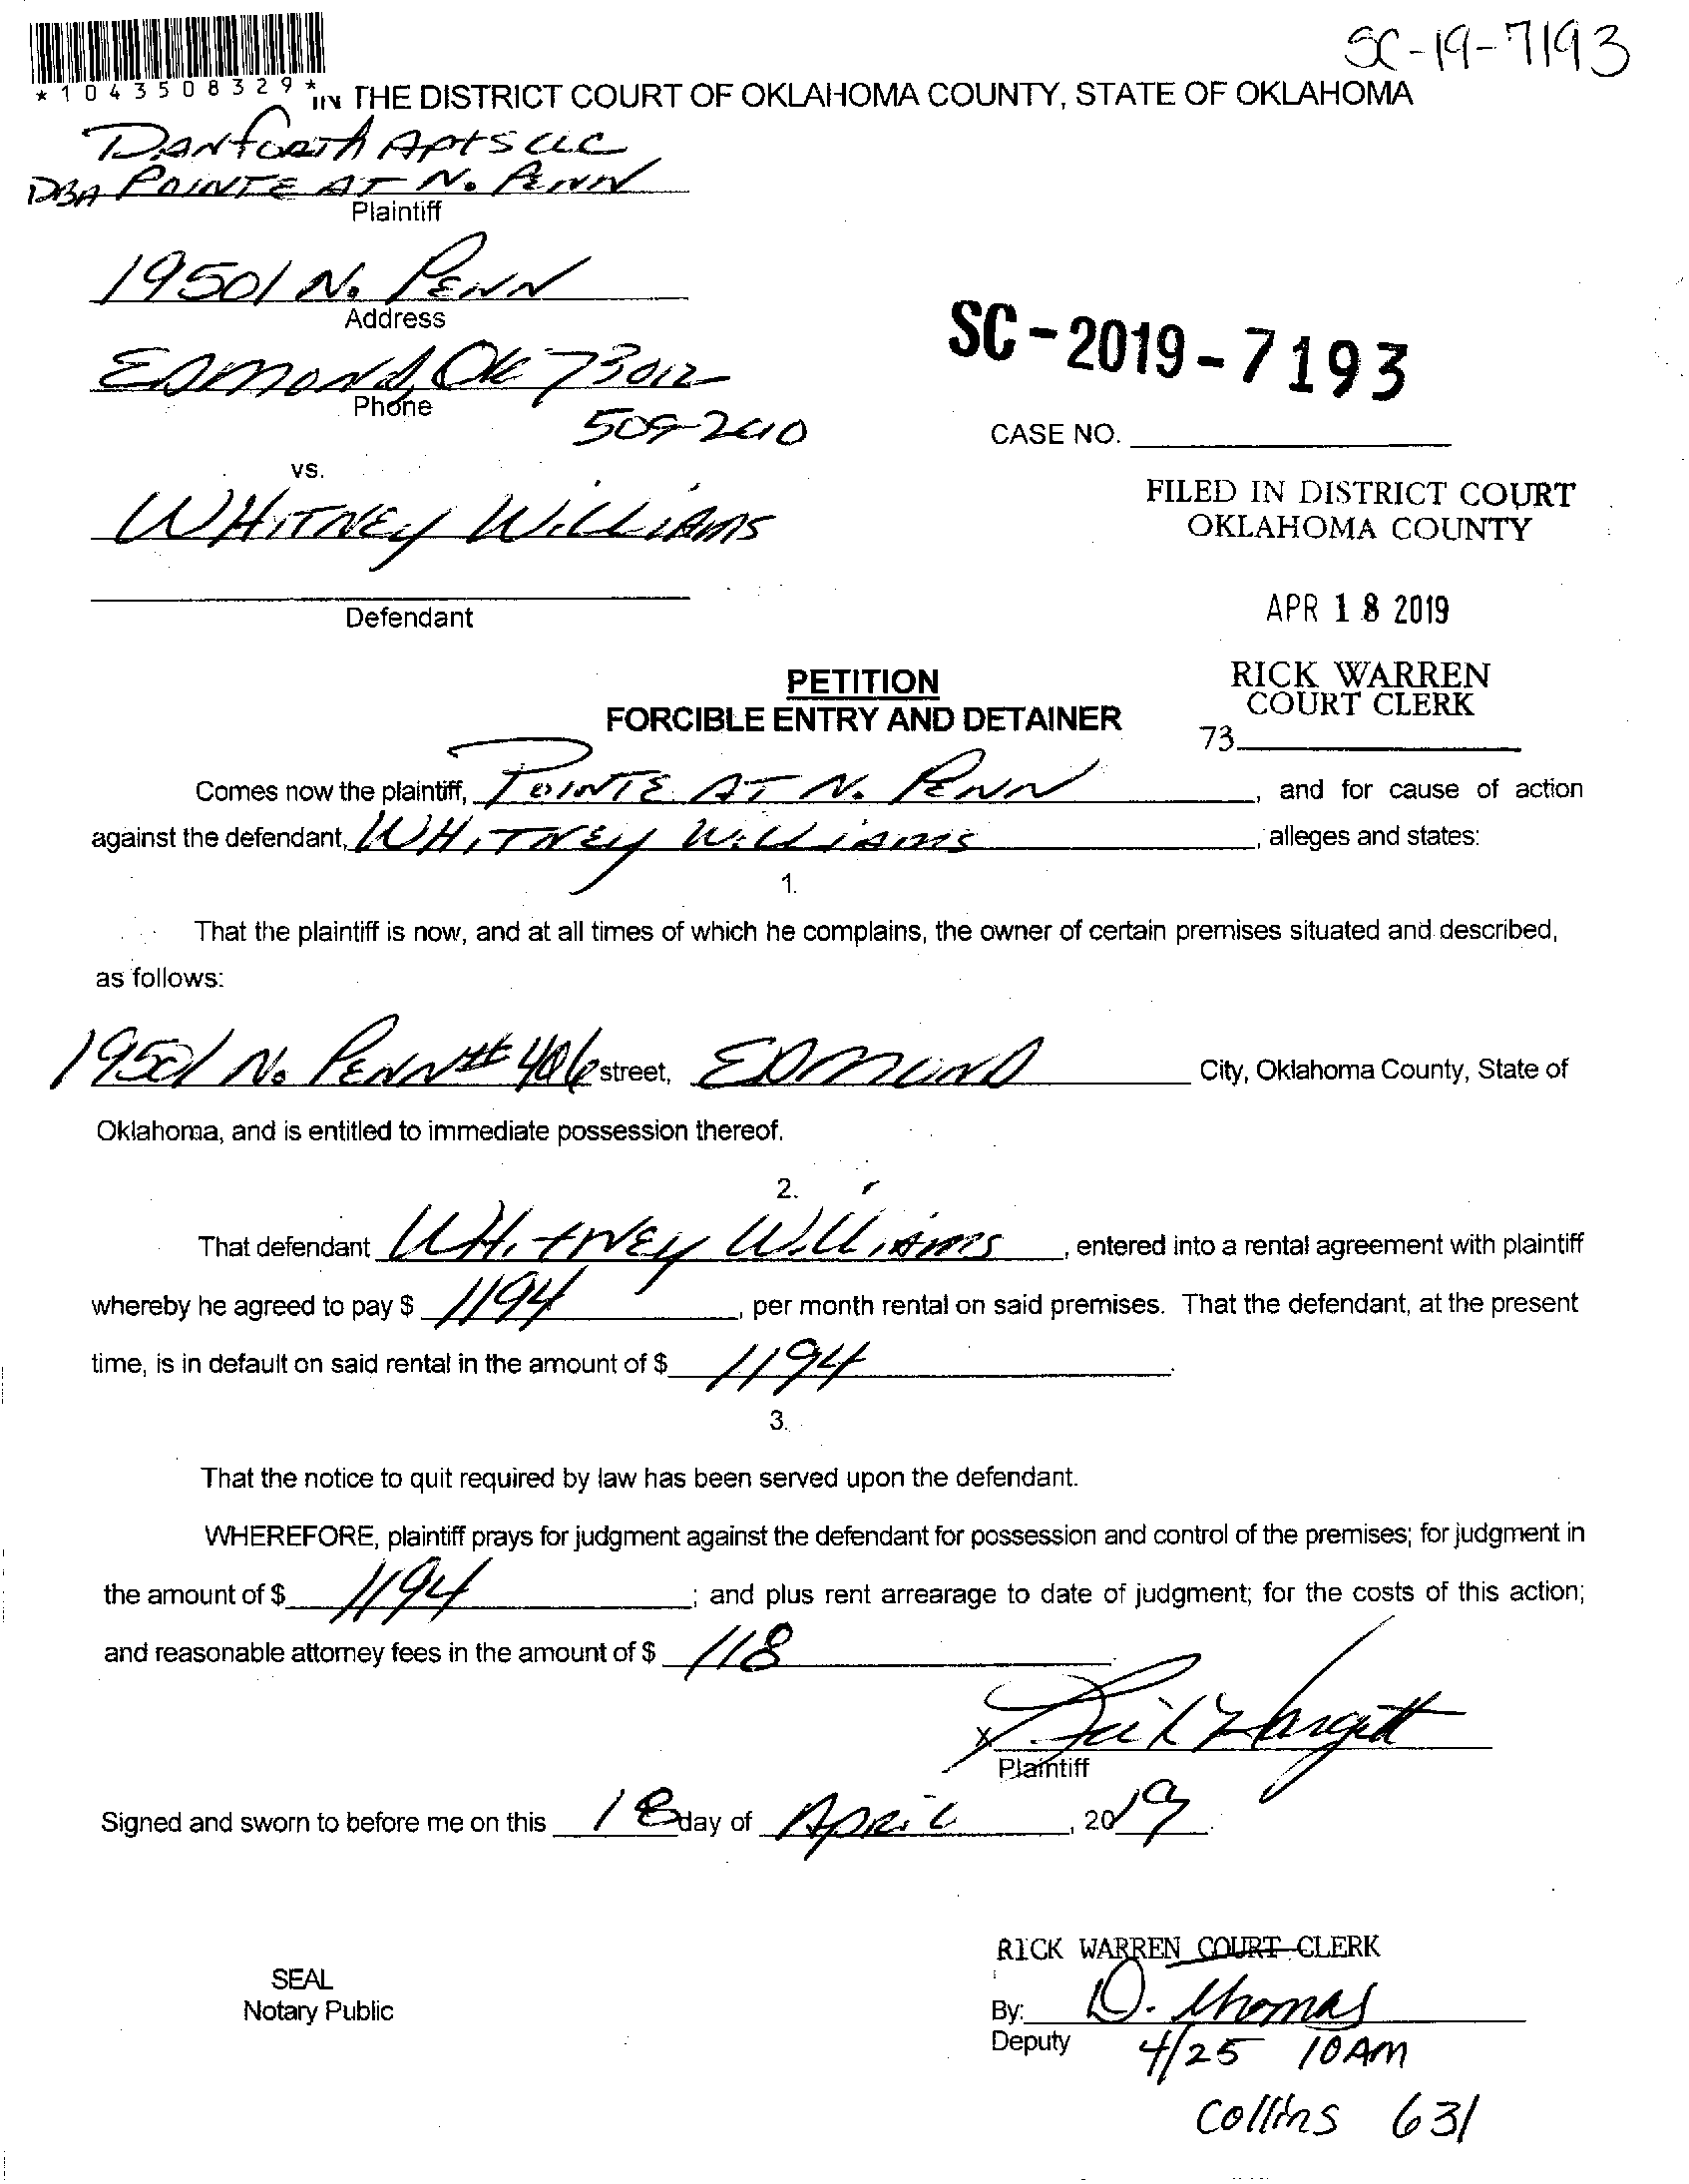 SC-19-7193
*1043508329*
IN THE DISTRICT COURT OF OKLAHOMA COUNTY, STATE OF OKLAHOMA
DANFORTH APTS LLC
DBA POINTE AT N. PENN
Plaintiff
19501 N. PENN
Address
EDMOND, OK 73012
Phone
509-2410
SC-2019-7193
CASE NO.
vs.
WHITNEY WILLIAMS
Defendant
FILED IN DISTRICT COURT
OKLAHOMA COUNTY
APR 18 2019
RICK WARREN
COURT CLERK
73
PETITION
FORCIBLE ENTRY AND DETAINER
Comes now the plaintiff, POINTE AT N. PENN, and for cause of action
against the defendant, WHITNEY WILLIAMS, alleges and states:
1.
That the plaintiff is now, and at all times of which he complains, the owner of certain premises situated and described,
as follows:
19501 N. PENN # 406 street, EDMOND City, Oklahoma County, State of
Oklahoma, and is entitled to immediate possession thereof.
2.
That defendant WHITNEY WILLIAMS, entered into a rental agreement with plaintiff
whereby he agreed to pay $ 1194, per month rental on said premises. That the defendant, at the present
time, is in default on said rental in the amount of $ 1194.
3.
That the notice to quit required by law has been served upon the defendant.
WHEREFORE, plaintiff prays for judgment against the defendant for possession and control of the premises; for judgment in
the amount of $ 1194; and plus rent arrearage to date of judgment; for the costs of this action;
and reasonable attorney fees in the amount of $ 118
X
Plaintiff
Signed and sworn to before me on this 18 day of APRIL, 2019.
SEAL
Notary Public
RICK WARREN COURT CLERK
By: D. Thomas
Deputy
4/25 10AM
Collins 631